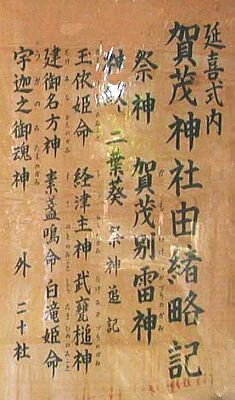 延喜式内
賀茂神社由緒略記
祭神 賀茂別雷神
神紋 二葉葵 祭神追記
玉依姫命 経津主神 武甕槌神
建御名方神 素盞嗚命 白滝姫命
宇迦之御魂神 外二十社